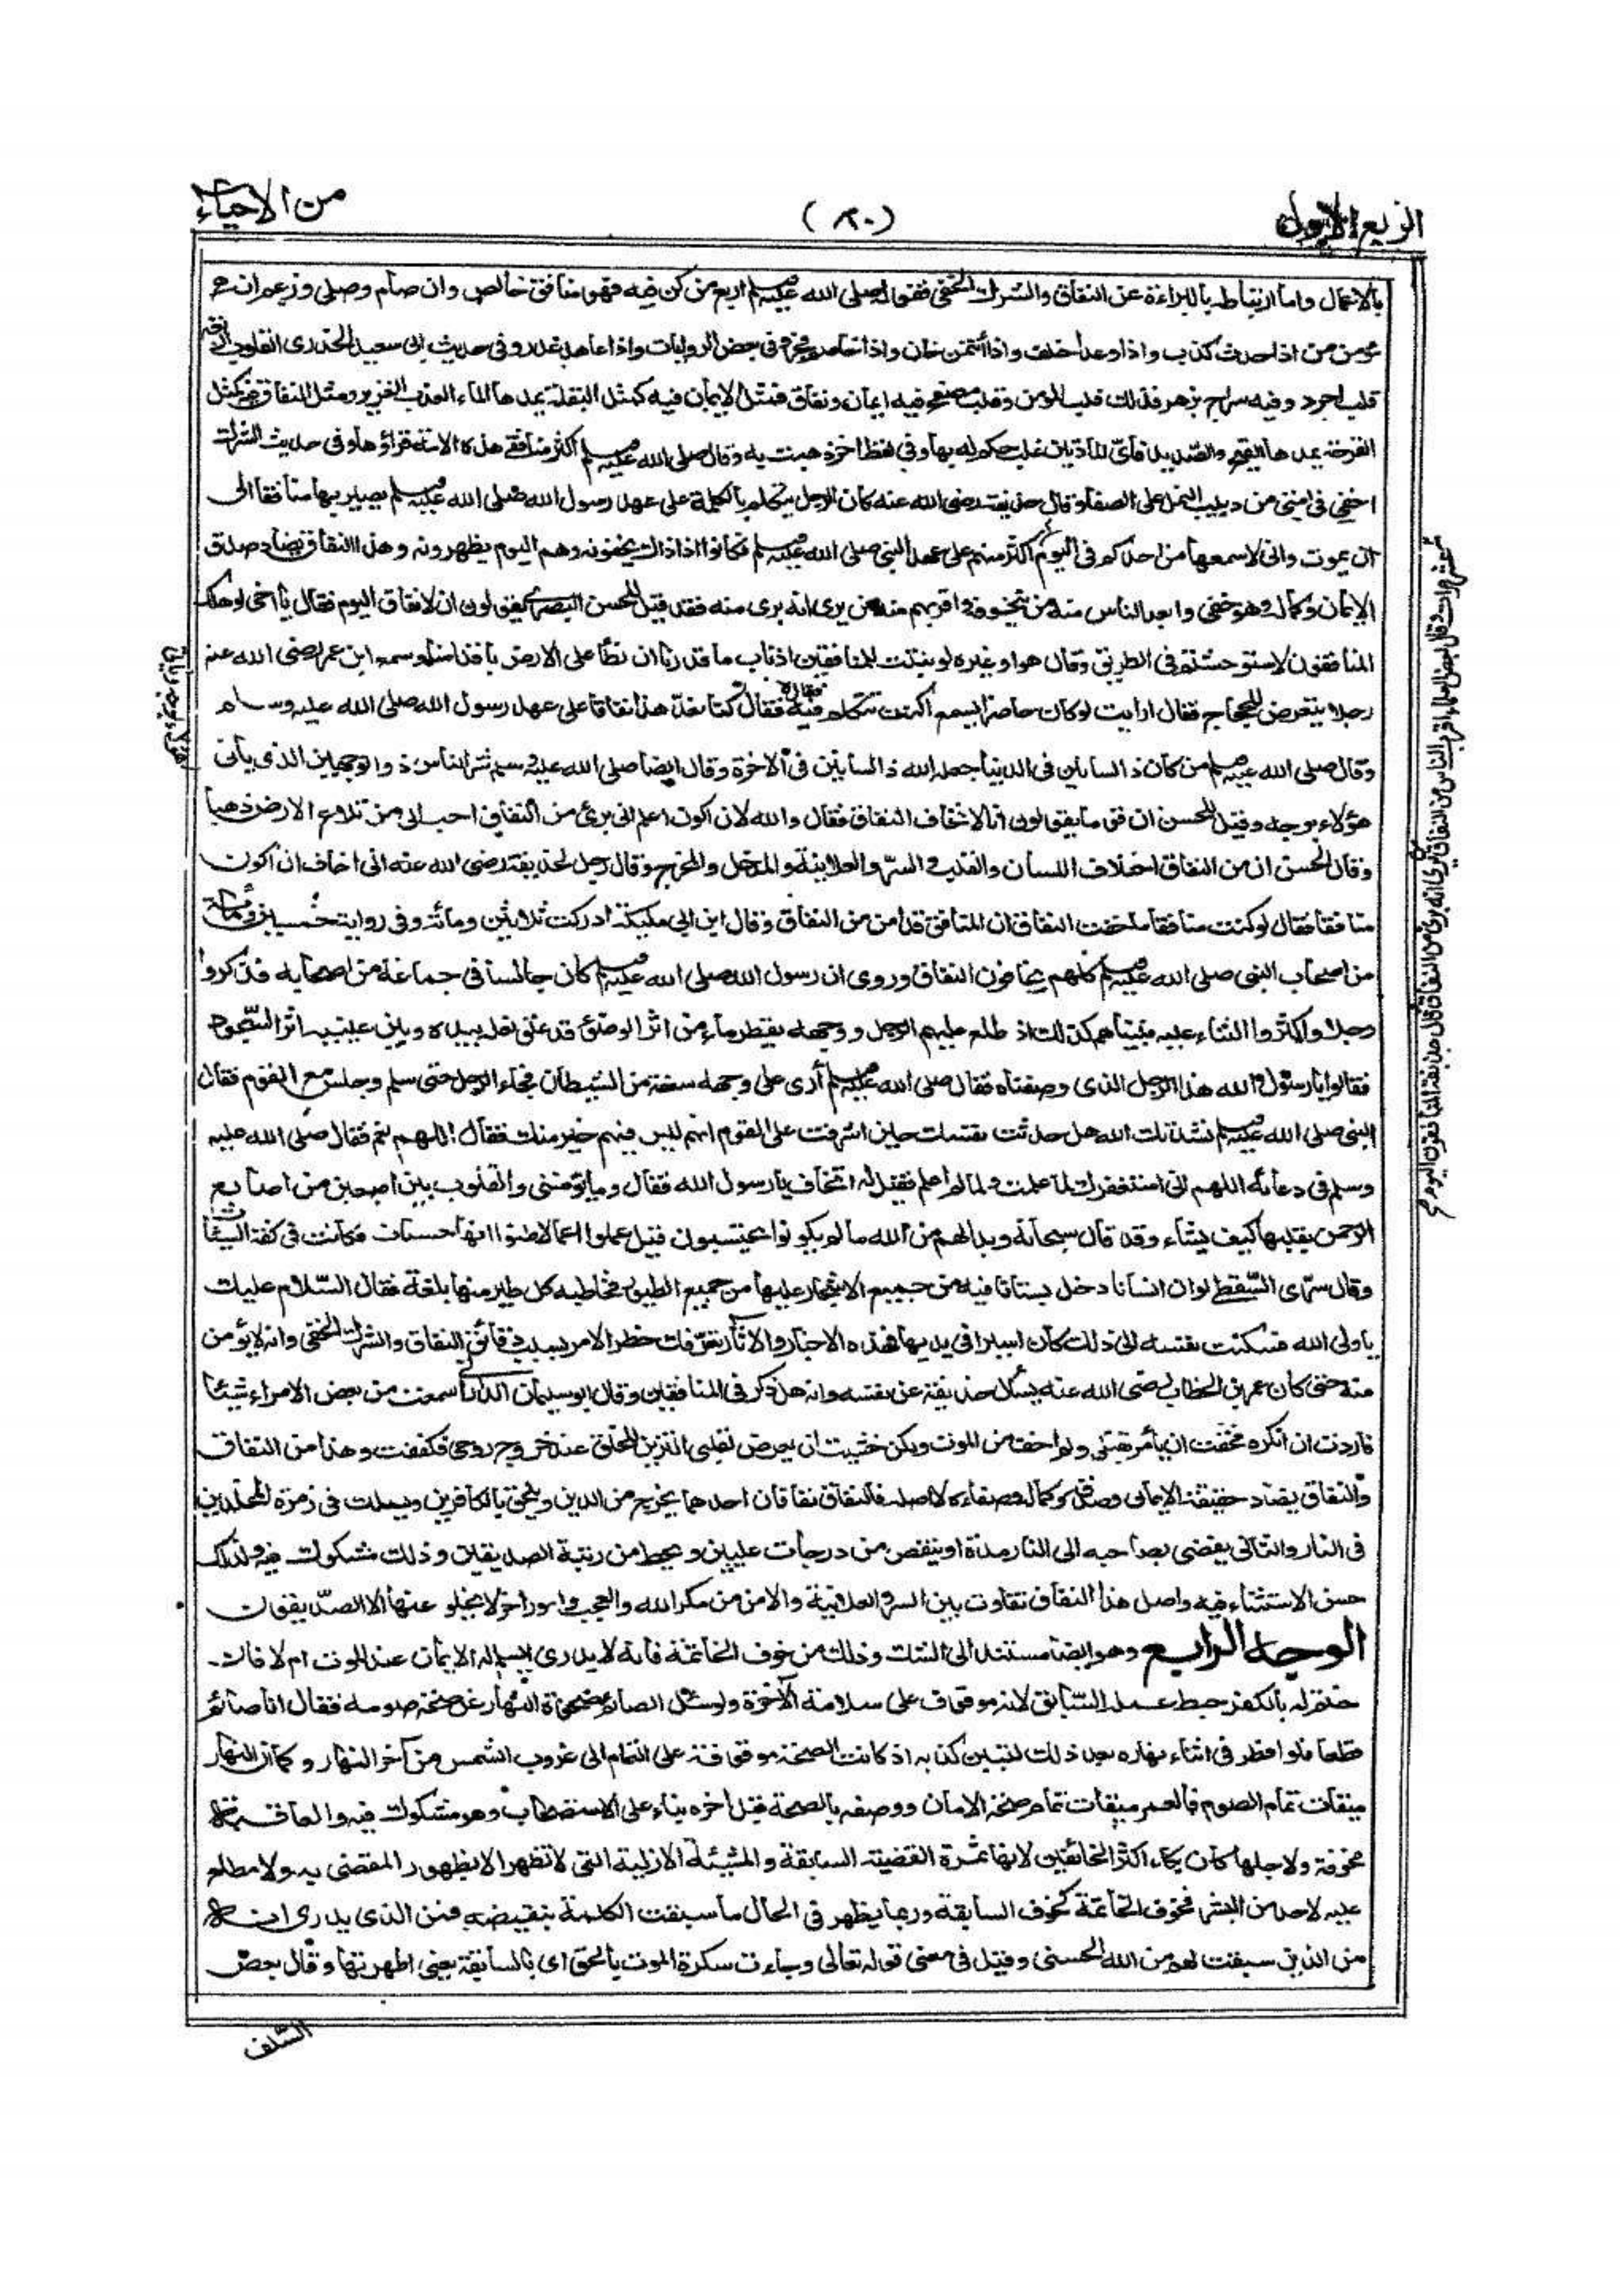 الربع الاول
(٨٠)
من الاحياء
بالاعمال واما ارتباطه بالبراءة عن النفاق والشرك الخفى فقوله صلى الله عليه وسلم اربع من كن فيه فهو منافق خالص وان صام وصلى وزعم انه
مؤمن من اذا حدث كذب واذا وعد اخلف واذا أئتمن خان واذا خاصم فجر وفى بعض الروايات واذا عاهد غدر وفى حديث ابى سعيد الخدرى القلوب اربعة
قلب اجرد وفيه سراج يزهر فذلك قلب المؤمن وقلب مصفح فيه ايمان ونفاق فمثل الايمان فيه كمثل البقلة يمدها الماء العذب الغزير ومثل النفاق فيه كمثل
القرحة يمدها القيح والصديد فاى المادتين غلب حكم له بها وفى لفظ اخر ذهبت به وقال صلى الله عليه وسلم اكثر منافقى هذه الامة قراؤها وفى حديث الشرك
اخفى فى امتى من دبيب النمل على الصفا وقال حذيفة رضى الله عنه كان الرجل يتكلم بالكلمة على عهد رسول الله صلى الله عليه وسلم يصير بها منافقا الى
ان يموت وانى لاسمعها من احدكم فى اليوم اكثر منهم على عهد النبى صلى الله عليه وسلم فكانوا اذ ذاك يخفونه وهم اليوم يظهرونه وهذا النفاق يضاد صدق
الايمان وكماله وهو خفى وابعد الناس منه من يتخوفه واقربهم منه من يرى انه برئ منه فقد قيل للحسن البصرى يقولون ان لا نفاق اليوم فقال يا اخى لو هلك
المنافقون لاستوحشتم فى الطريق وقال هو او غيره لو نبتت للمنافقين اذناب ما قدرنا ان نطأ على الارض باقدامنا وسمع ابن عمر رضى الله عنه
رجلا يتعرض للحجاج فقال ارأيت لو كان حاضرا يسمع أكنت تتكلم فيه فقال لا فقال كنا نعد هذا نفاقا على عهد رسول الله صلى الله عليه وسلم
وقال صلى الله عليه وسلم من كان ذا لسانين فى الدنيا جعله الله ذا لسانين فى الاخرة وقال ايضا صلى الله عليه وسلم شر الناس ذو الوجهين الذى يأتى
هؤلاء بوجه وقيل للحسن ان قوما يقولون انا لا نخاف النفاق فقال والله لان اكون اعلم انى برئ من النفاق احب الى من تلاع الارض ذهبا
وقال الحسن ان من النفاق اختلاف اللسان والقلب والسر والعلانية والمدخل والمخرج وقال رجل لحذيفة رضى الله عنه انى اخاف ان اكون
منافقا فقال لو كنت منافقا ما خفت النفاق ان المنافق قد أمن من النفاق وقال ابن ابى مليكة ادركت ثلاثين ومائة وفى رواية خمسين ومائة
من اصحاب النبى صلى الله عليه وسلم كلهم يخافون النفاق وروى ان رسول الله صلى الله عليه وسلم كان جالسا فى جماعة من اصحابه فذكروا
رجلا واكثروا الثناء عليه فبينا هم كذلك اذ طلع عليهم الرجل ووجهه يقطر ماء من اثر الوضوء قد علق نعله بيده وبين عينيه اثر السجود
فقالوا يا رسول الله هذا الرجل الذى وصفناه فقال صلى الله عليه وسلم أرى على وجهه سفعة من الشيطان فجاء الرجل حتى سلم وجلس مع القوم فقال
النبى صلى الله عليه وسلم نشدتك الله هل حدثت نفسك حين اشرفت على القوم انه ليس فيهم خير منك فقال اللهم نعم فقال صلى الله عليه
وسلم فى دعائه اللهم انى استغفرك لما علمت ولما لم اعلم فقيل له اتخاف يا رسول الله فقال وما يؤمننى والقلوب بين اصبعين من اصابع
الرحمن يقلبها كيف يشاء وقد قال سبحانه وبدا لهم من الله ما لم يكونوا يحتسبون قيل عملوا اعمالا ظنوا انها حسنات فكانت فى كفة السيئات
وقال سرى السقطى لو ان انسانا دخل بستانا فيه من جميع الاشجار عليها من جميع الطيور فخاطبه كل طير منها بلغة فقال السلام عليك
يا ولى الله فسكنت نفسه الى ذلك كان اسيرا فى يديها فهذه الاخبار والآثار تعرفك خطر الامر بسبب دقائق النفاق والشرك الخفى وانه لا يؤمن
منه حتى كان عمر بن الخطاب رضى الله عنه يسأل حذيفة عن نفسه وانه هل ذكر فى المنافقين وقال ابو سليمان الدارانى سمعت من بعض الامراء شيئا
فاردت ان انكره فخفت ان يأمر بقتلى ولم اخف من الموت ولكن خشيت ان يعرض لقلبى التزين للخلق عند خروج روحى فكففت وهذا من النفاق
والنفاق يضاد حقيقة الايمان وصدقه وكماله وصفاءه لا اصله فالنفاق نفاقان احدهما يخرج من الدين ويلحق بالكافرين ويسلك فى زمرة المخلدين
فى النار والثانى يفضى بصاحبه الى النار مدة او ينقص من درجات عليين ويحط من رتبة الصديقين وذلك مشكوك فيه ولذلك
حسن الاستثناء فيه واصل هذا النفاق تفاوت بين السر والعلانية والامن من مكر الله والعجب وامور اخر لا يخلو عنها الا الصديقون
الوجه الرابع وهو ايضا مستند الى الشك وذلك من خوف الخاتمة فانه لا يدرى ايسلم له الايمان عند الموت ام لا فان
ختم له بالكفر حبط عمله السابق لانه موقوف على سلامة الآخرة ولو سئل الصائم ضحوة النهار عن صحة صومه فقال انا صائم
قطعا فلو افطر فى اثناء نهاره بعد ذلك لتبين كذبه اذ كانت الصحة موقوفة على التمام الى غروب الشمس من آخر النهار وكما ان النهار
ميقات تمام الصوم فالعمر ميقات تمام صحة الايمان ووصفه بالصحة قبل اخره بناء على الاستصحاب وهو مشكوك فيه والعاقبة
مخوفة ولاجلها كان بكاء اكثر الخائفين لانها ثمرة القضية السابقة والمشيئة الازلية التى لا تظهر الا بظهور المقضى به ولا مطلع
عليه لاحد من البشر فخوف الخاتمة كخوف السابقة وربما يظهر فى الحال ما سبقت الكلمة بنقيضه فمن الذى يدرى انه
من الذين سبقت لهم من الله الحسنى وقيل فى معنى قوله تعالى وجاءت سكرة الموت بالحق اى بالسابقة يعنى اظهرتها وقال بعض
السلف
عشر مرات وقال بعض العلماء اقرب الناس من النفاق من يرى انه برئ من النفاق وقال حذيفة المنافقون اليوم
هؤلاء بوجه ويأتى